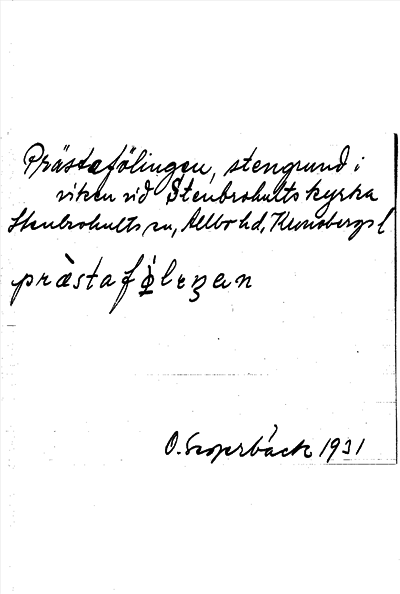 Prästafölingen, stengrund i
viken vid Stenbrohults kyrka
Stenbrohults sn, Allbo hd, Kronobergs l.
præ̀stafø̀leŋen
O. Goperbäck 1931